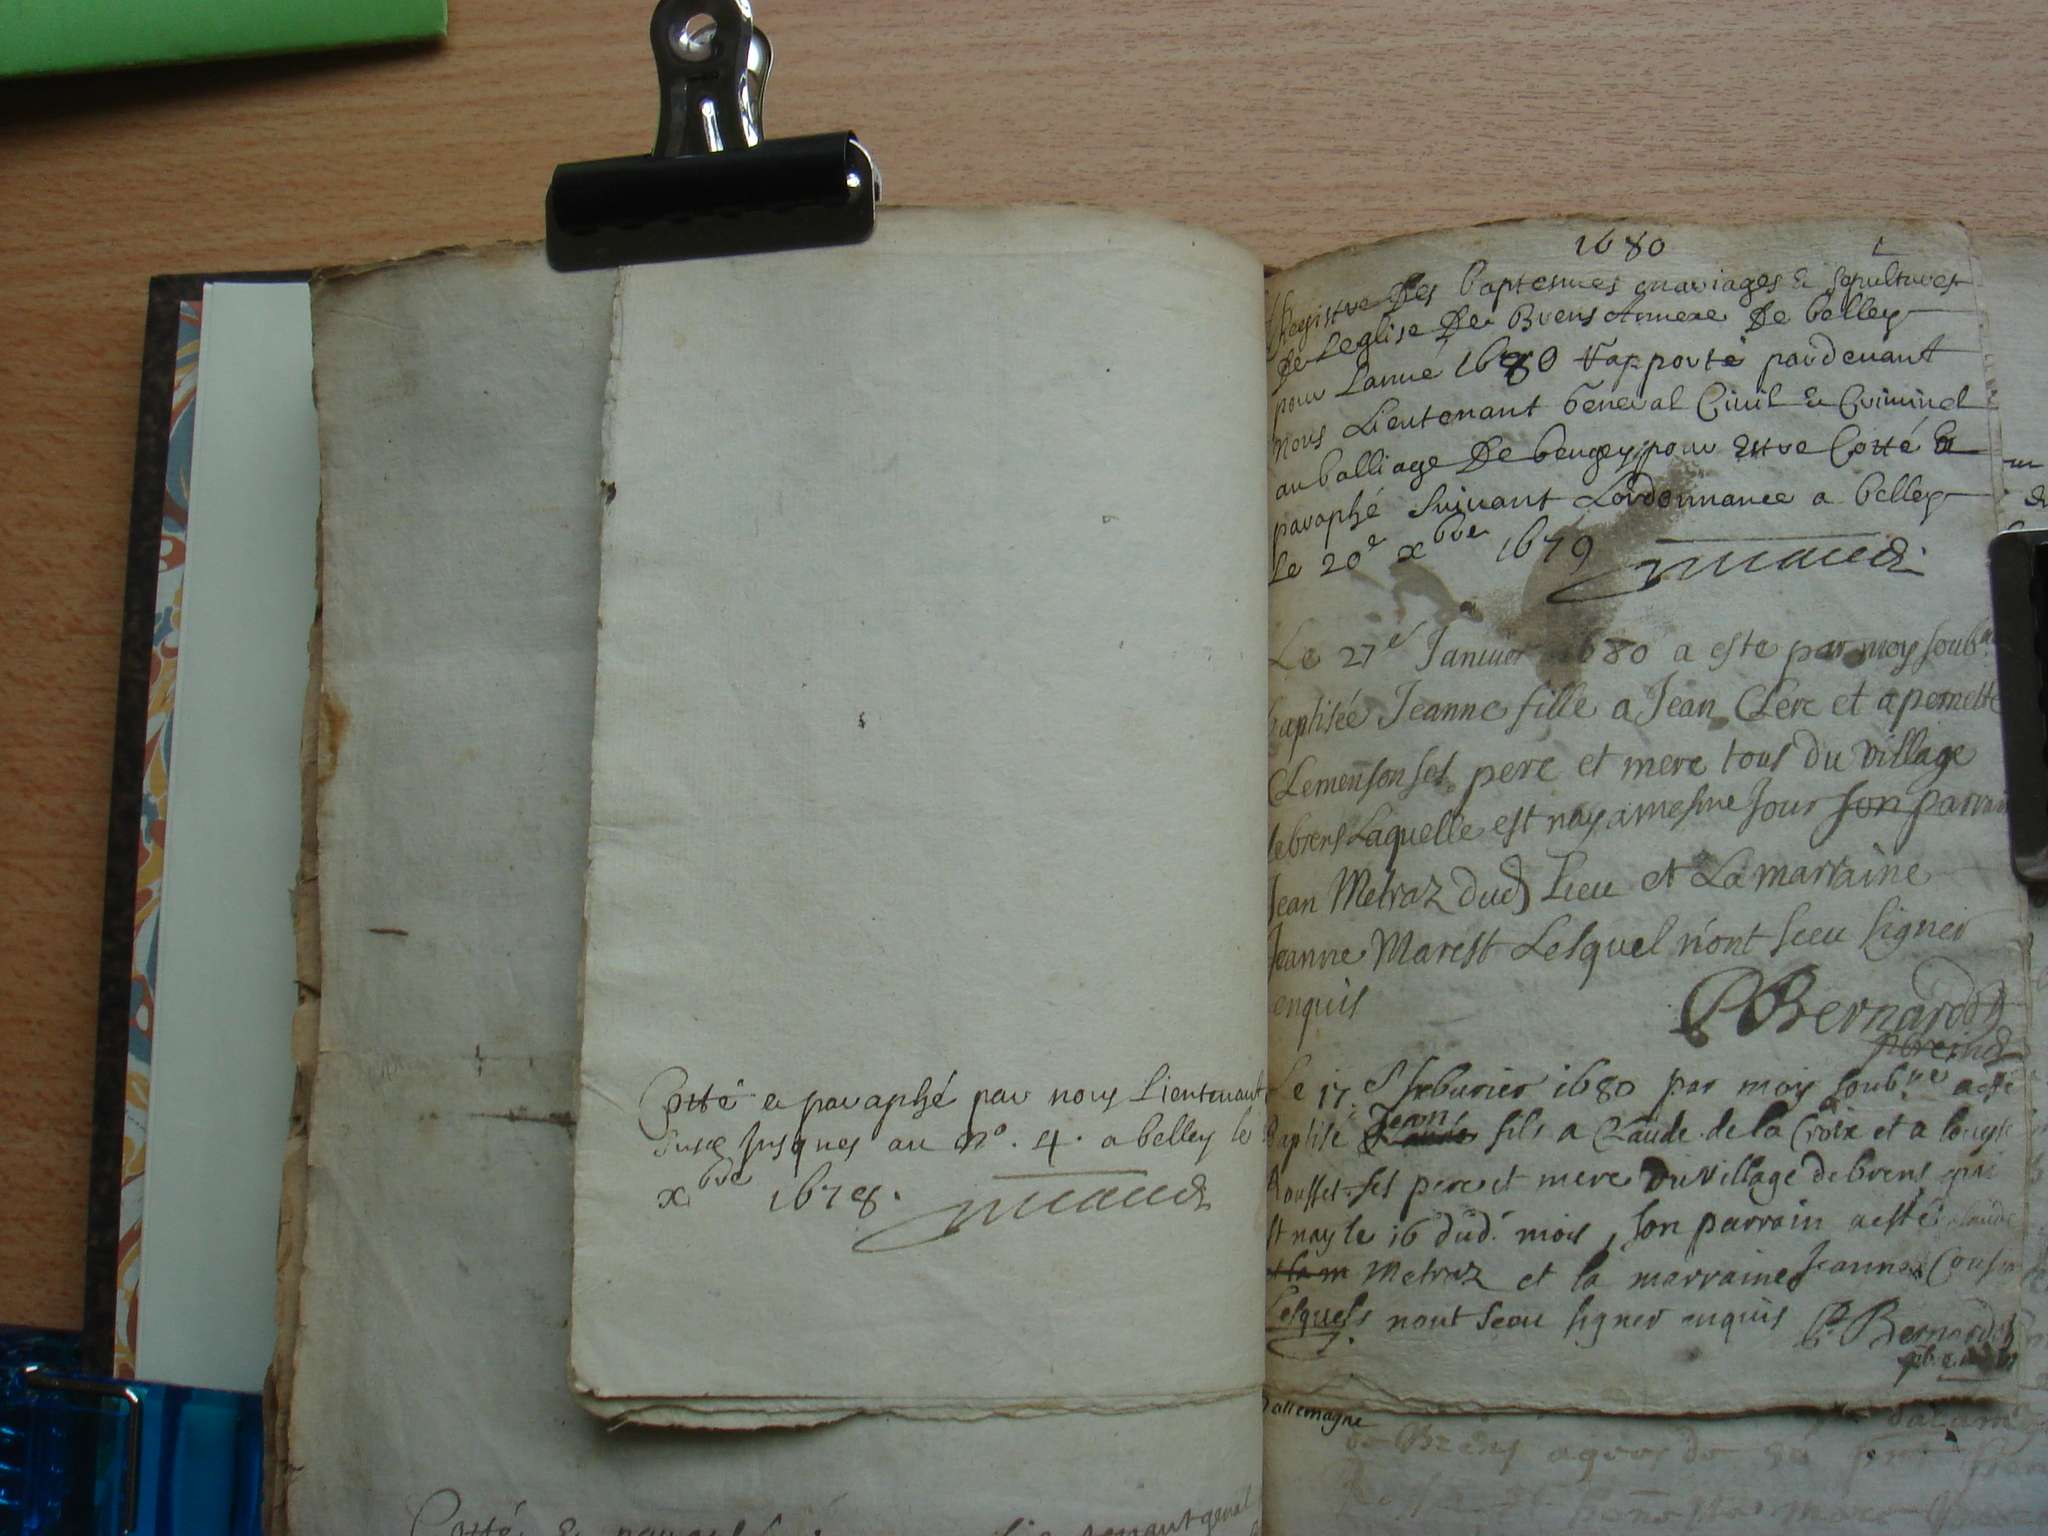 Cotté & paraphé par nous Lieutenant
susd Jusques au n°. 4. a belley le
xbre 1678.
1680
Registre Des baptesmes mariages & sepultures
De Leglise De Brens Annexe De belley
pour Lanné 1680 rapporté pardevant
nous Lieutenant general Civil & Criminel
au balliage De beugey pour Estre Cotté &
paraphé suivant Lordonnance a belley
Le 20e xbre 1679
Le 27e Januier 1680 a este par moy soub.
baptisée Jeanne fille a Jean Clerc et a pernette
Clemenson ses pere et mere tous du village
debrens Laquelle est nay a mesme Jour son parrain
Jean Metraz dud Lieu et La marraine
Jeanne Marest Lesquel n'ont sceu signer
enquis
P Bernard
Le 17e feburier 1680 par moy soub.ne a esté
Baptise Jean fils a Claude de la Croix et a louyse
Rousset ses pere et mere du village de brens qui
Est nay le 16 dud. mois, son parrain a esté Claude
et la m Metraz et la marraine Jeanne Cousin
Lesquels nont sceu signer enquis P. Bernard
dallemagne
de Brens
Cotté &